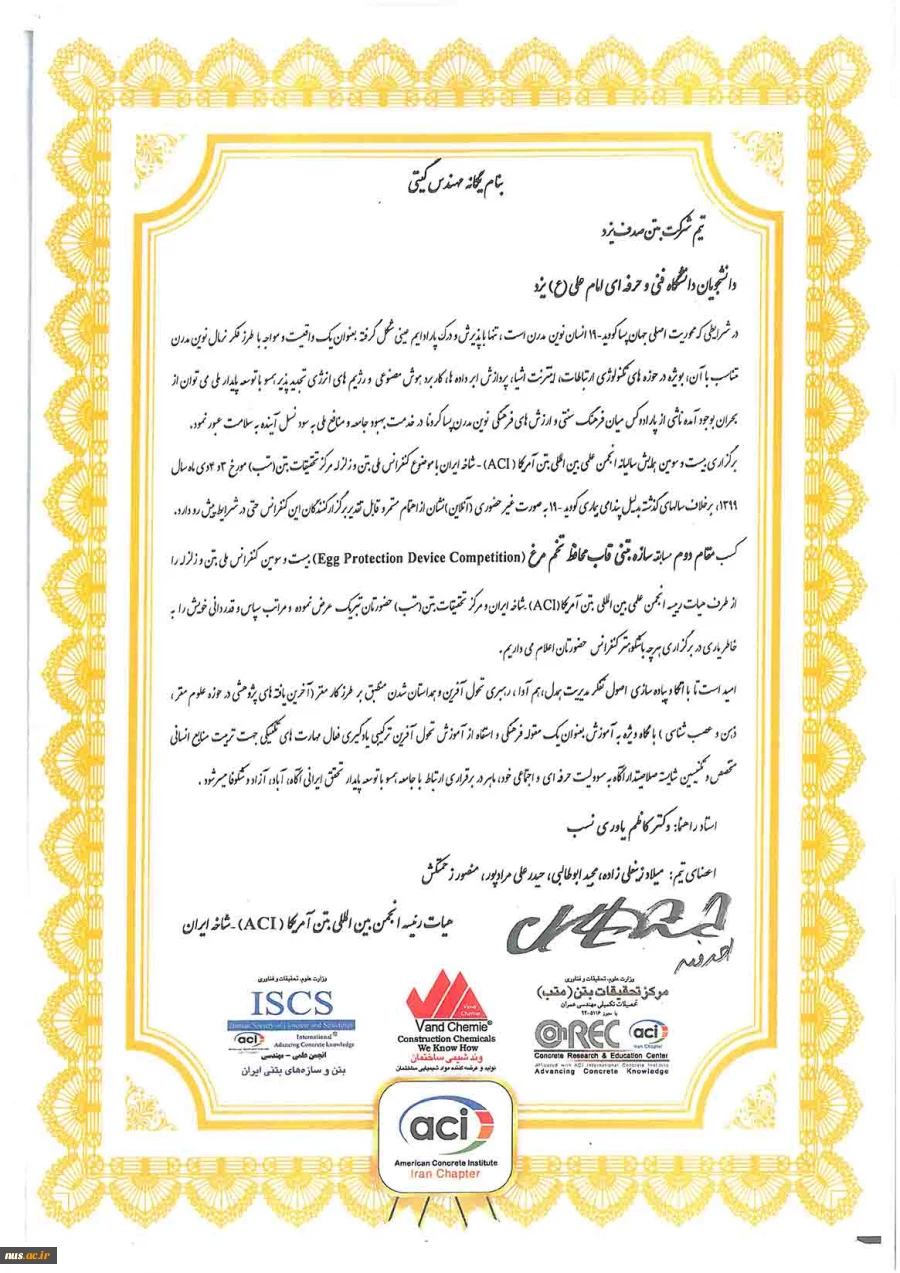 بنام یگانه مهندس گیتی
تیم شرکت بتن صدف یزد
دانشجویان دانشگاه فنی و حرفه ای امام علی (ع) یزد
در شرایطی که محوریت اصلی جهان پسا کووید-۱۹ انسان نوین مدرن است، تنها با پذیرش و درک پارادایم عینی شکل گرفته بعنوان یک واقعیت و مواجه با طرز فکر نرمال نوین مدرن
متناسب با آن، بویژه در حوزه های تکنولوژی ارتباطات، اینترنت اشیا، پردازش ابر داده ها، کاربرد هوش مصنوعی و رژیم های انرژی تجدید پذیر همسو با توسعه پایدار ملی می توان از
بحران بوجود آمده ناشی از پارادوکس میان فرهنگ سنتی و ارزش های فرهنگی نوین مدرن پسا کرونا در خدمت بهبود جامعه و منافع ملی به سود نسل آینده به سلامت عبور نمود.
برگزاری بیست و سومین همایش سالیانه انجمن علمی بین المللی بتن آمریکا (ACI) - شاخه ایران با موضوع کنفرانس ملی بتن و زلزله مرکز تحقیقات بتن (متب) مورخ ۳ و ۴ دی ماه سال
۱۳۹۹، برخلاف سالهای گذشته بدلیل پندامی بیماری کووید-۱۹ به صورت غیر حضوری (آنلاین) نشان از اهتمام مستمر و قابل تقدیر برگزار کنندگان این کنفرانس حتی در شرایط پیش رو دارد.
کسب مقام دوم مسابقه سازه بتنی قاب محافظ تخم مرغ (Egg Protection Device Competition) بیست و سومین کنفرانس ملی بتن و زلزله را
از طرف هیات رییسه انجمن علمی بین المللی بتن آمریکا (ACI) ـ شاخه ایران و مرکز تحقیقات بتن (متب) حضورتان تبریک عرض نموده و مراتب سپاس و قدردانی خویش را به
خاطر یاری در برگزاری هرچه باشکوهتر کنفرانس حضورتان اعلام می داریم.
امید است تا با اتکا و پیاده سازی اصول تفکر مدیریت همدل، هم آوا، رهبری تحول آفرین و همداستان شدن منطبق بر طرز کار مغز (آخرین یافته های پژوهشی در حوزه علوم مغز،
ذهن و عصب شناسی) با نگاه ویژه به آموزش بعنوان یک مقوله فرهنگی و استفاه از آموزش تحول آفرین ترکیبی یادگیری فعال مهارت های تکنیکی جهت تربیت منابع انسانی
متخصص و تکنسین شایسته صلاحیتدار آگاه به مسولیت حرفه ای و اجتماعی خود، ماهر در برقراری ارتباط با جامعه همسو با توسعه پایدار تحقق ایرانی آگاه، آباد، آزاد و شکوفا میسر شود.
استاد راهنما: دکتر کاظم یاوری نسب
اعضای تیم: میلاد زینعلی زاده، مجید ابوطالبی، حیدر علی مرادپور، منصور زحمتکش
هیات رئیسه انجمن بین المللی بتن آمریکا (ACI) ـ شاخه ایران
وزارت علوم، تحقیقات و فناوری
مرکز تحقیقات بتن (متب)
تحصیلات تکمیلی مهندسی عمران
ConREC
aci
Iran Chapter
Concrete Research & Education Center
Affiliated with ACI International Concrete Institute
Advancing Concrete Knowledge
Vand Chemie
Vand Chemie®
Construction Chemicals
We Know How
وند شیمی ساختمان
تولید و عرضه کننده مواد شیمیایی ساختمان
وزارت علوم، تحقیقات و فناوری
ISCS
Iranian Society of Concrete and Structures
aci
International
Advancing Concrete Knowledge
انجمن علمی - مهندسی
بتن و سازه‌های بتنی ایران
aci
American Concrete Institute
Iran Chapter
nus.ac.ir